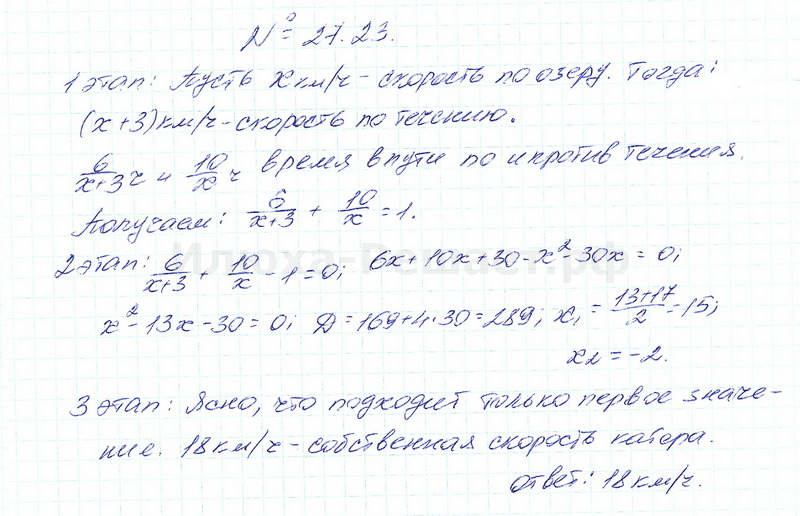 № 27.23.
1 этап: Пусть x км/ч – скорость по озеру. Тогда:
(x+3) км/ч – скорость по течению.
6/(x+3) ч и 10/x ч время в пути по и против течения.
Получаем: 6/(x+3) + 10/x = 1.
2 этап: 6/(x+3) + 10/x - 1 = 0; 6x + 10x + 30 - x² - 30x = 0;
x² - 13x - 30 = 0; Д = 169 + 4·30 = 289; x₁ = (13+17)/2 = 15;
x₂ = -2.
3 этап: Ясно, что подходит только первое значе-
ние. 18 км/ч – собственная скорость катера.
Ответ: 18 км/ч.
Илюха-Решает.рф